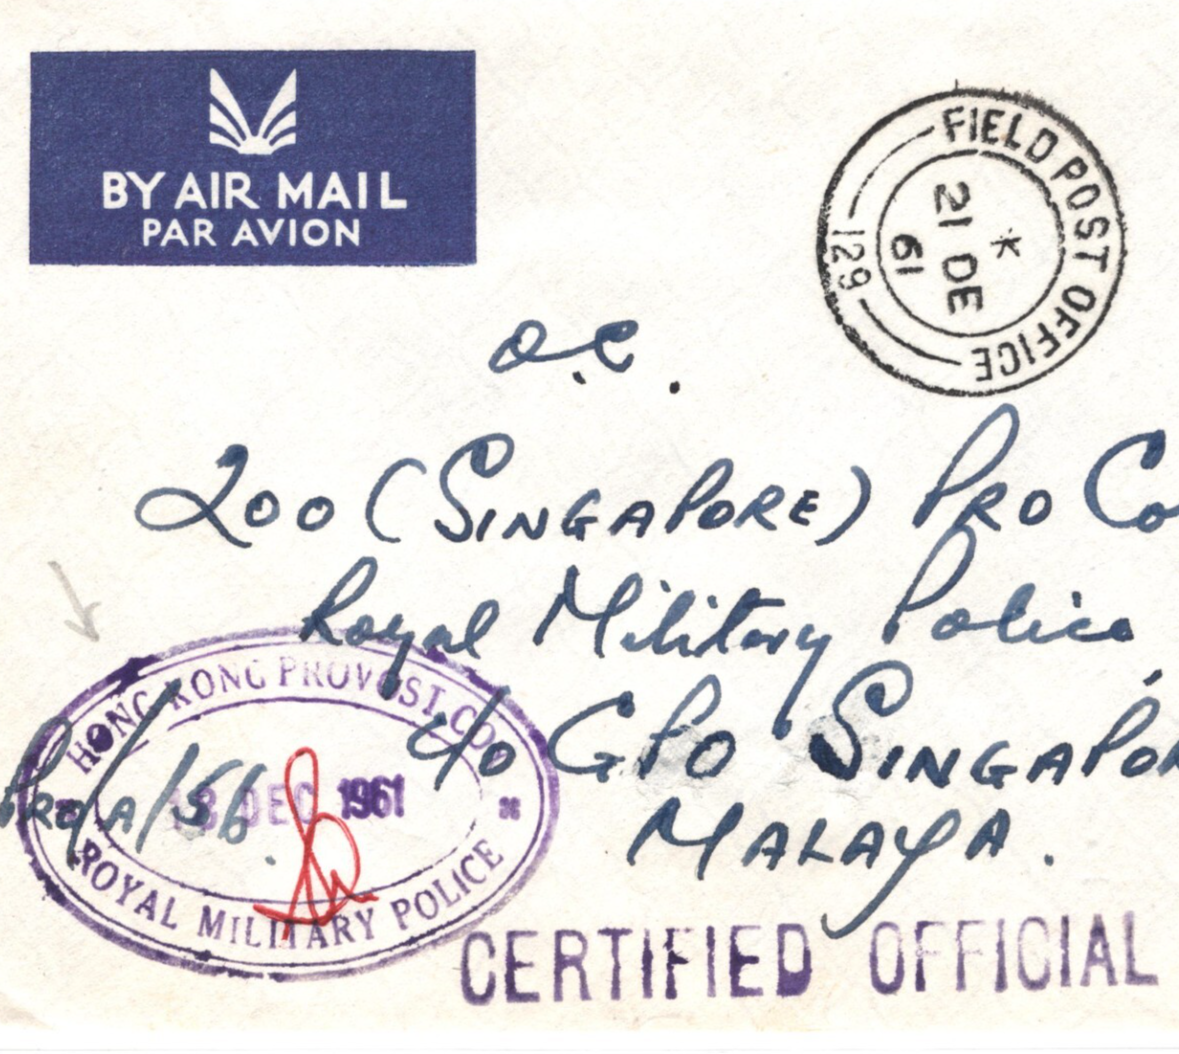 BY AIR MAIL
PAR AVION
FIELD POST OFFICE
129
*
21 DE
61
O.C.
200 (SINGAPORE) PRO Co
Royal Military Police,
c/o GPO SINGAPOR
MALAYA.
HONG KONG PROVOST COY
DEC 1961
ROYAL MILITARY POLICE
CERTIFIED OFFICIAL